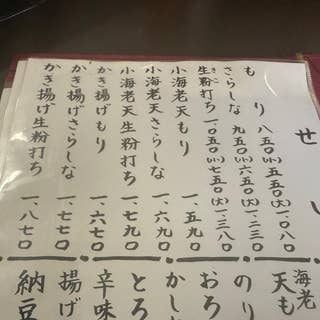 せい
もり 八五〇 (小)五五〇 (大)一、〇八〇
さらしな 九五〇 (小)六五〇 (大)一、二三〇
生粉打ち 一、〇五〇 (小)七五〇 (大)一、三八〇
小海老天もり 一、五九〇
小海老天さらしな 一、六九〇
小海老天生粉打ち 一、七九〇
かき揚げもり 一、六七〇
かき揚げさらしな 一、七七〇
かき揚げ生粉打ち 一、八七〇
海老
天も
のり
おろ
かし
とろ
辛味
揚げ
納豆